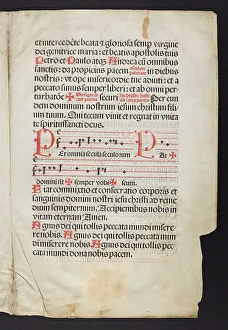 et intercedēte beata ⁊ gloriosa semp virgine
dei genitrice maria: et beatis apostolis tuis
Petro et Paulo atq; Andrea cū omnibus
sanctis: da propicius pacem in diebus
nostris: vt ope misericordie tue adiuti: et a
peccato simus semper liberi: et ab omni per-
turbatiōe securi per eun
dem dominum nostrum iesum christum fili
um tuum. Qui tecum viuit et regnat in vnita
te spiritussancti deus.
Per omnia secula seculorum Pax
domini sit semper vobis cum.
Fiat commixtio et consecratio corporis et
sanguinis domini nostri iesu christi accipi
entibus nobis in
vitam eternam Amen.
Agnus dei qui tollis peccata mundi misere
re nobis. Agnus dei qui tollis peccata mundi
miserere nobis. Agnus dei qui tollis pec
cata mundi dona nobis pacem.